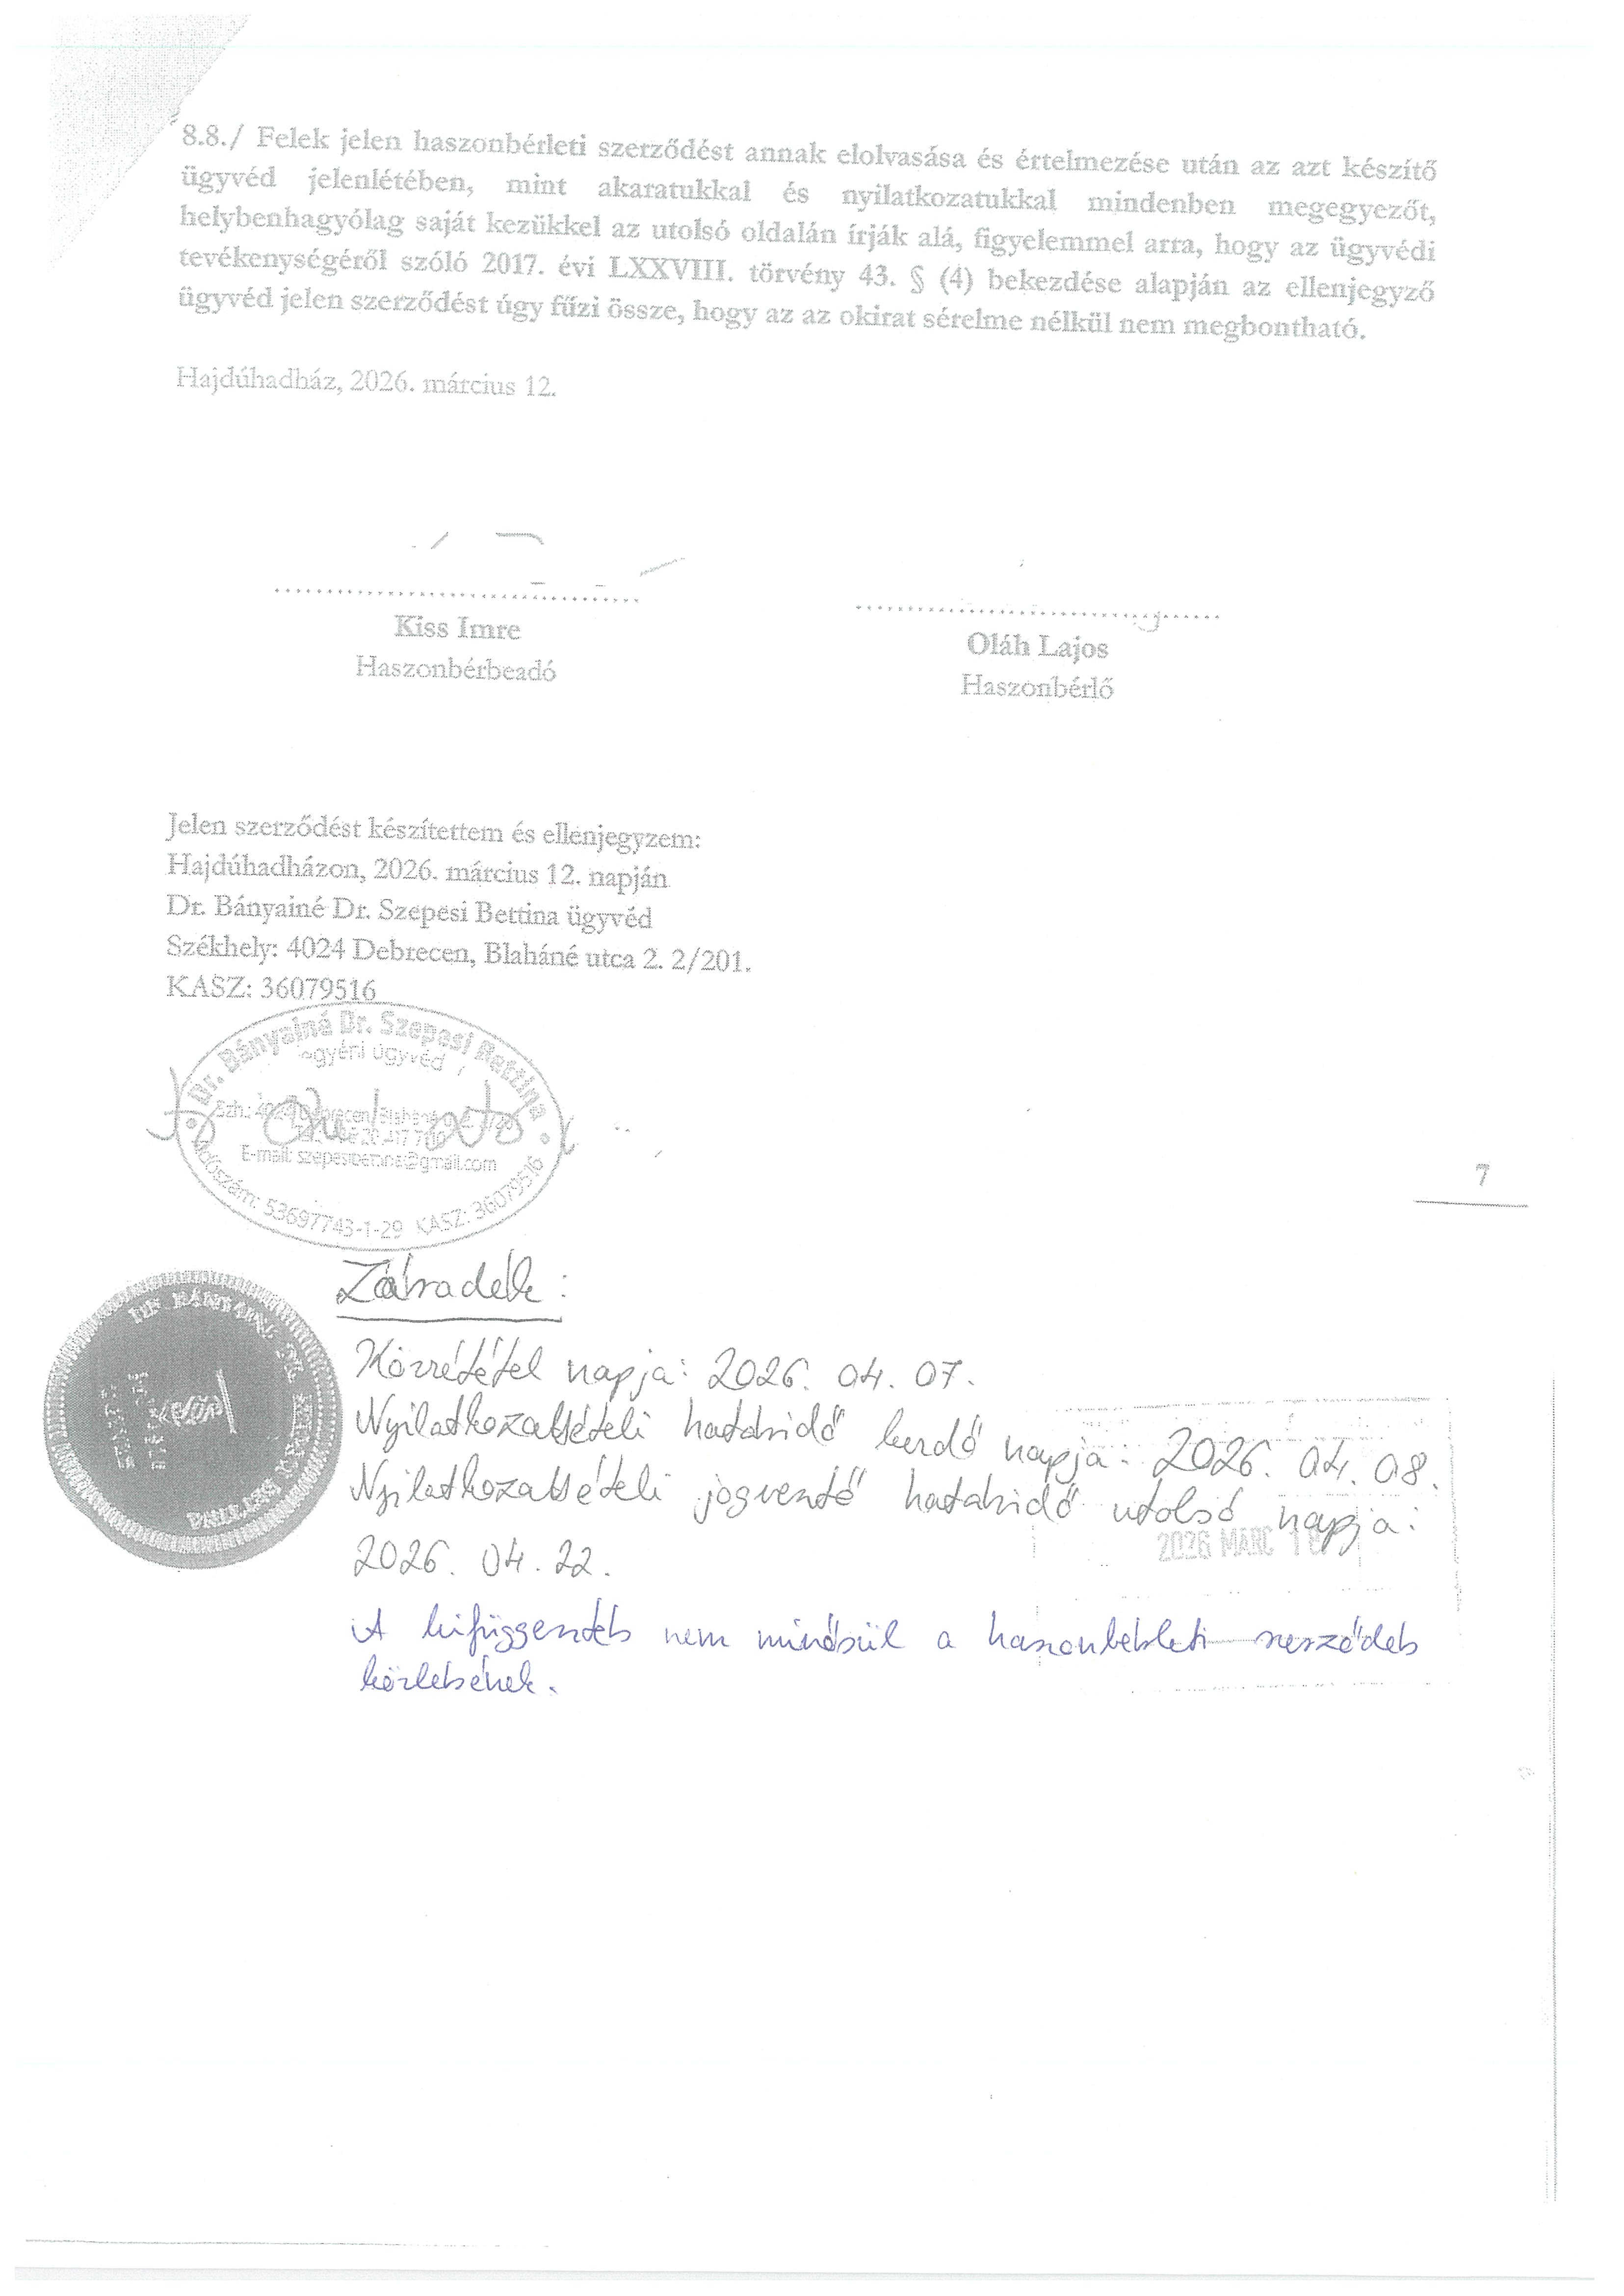 8.8./ Felek jelen haszonbérleti szerződést annak elolvasása és értelmezése után az azt készítő
ügyvéd jelenlétében, mint akaratukkal és nyilatkozatukkal mindenben megegyezőt,
helybenhagyólag saját kezükkel az utolsó oldalán írják alá, figyelemmel arra, hogy az ügyvédi
tevékenységéről szóló 2017. évi LXXVIII. törvény 43. § (4) bekezdése alapján az ellenjegyző
ügyvéd jelen szerződést úgy fűzi össze, hogy az az okirat sérelme nélkül nem megbontható.
Hajdúhadház, 2026. március 12.
Kiss Imre
Haszonbérbeadó
Oláh Lajos
Haszonbérlő
Jelen szerződést készítettem és ellenjegyzem:
Hajdúhadházon, 2026. március 12. napján
Dr. Bányainé Dr. Szepesi Bettina ügyvéd
Székhely: 4024 Debrecen, Blaháné utca 2. 2/201.
KASZ: 36079516
Dr. Bányainé Dr. Szepesi Bettina
egyéni ügyvéd
E-mail: szepesibettina@gmail.com
Adószám: 53697743-1-29 KASZ: 36079516
7
Záradék:
Közzététel napja: 2026. 04. 07.
Nyilatkozattételi határidő kezdő napja: 2026. 04. 08.
Nyilatkozattételi jogvesztő határidő utolsó napja:
2026 MÁRC
2026. 04. 22.
A kifüggesztés nem minősül a haszonbérleti szerződés
közlésének.